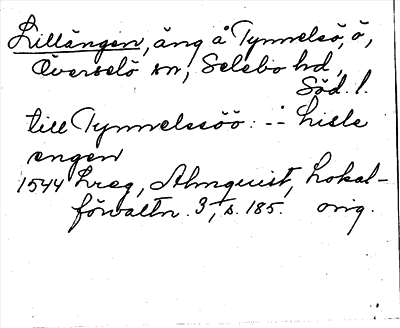 Lillängen, äng å Tynnelsö, ö,
Överselö sn, Selebo hd,
Söd. l.
till Tynnelssöö: ÷ lisle
engen
1544 Lreg, Almquist, Lokal-
förvaltn. 3, s. 185. orig.